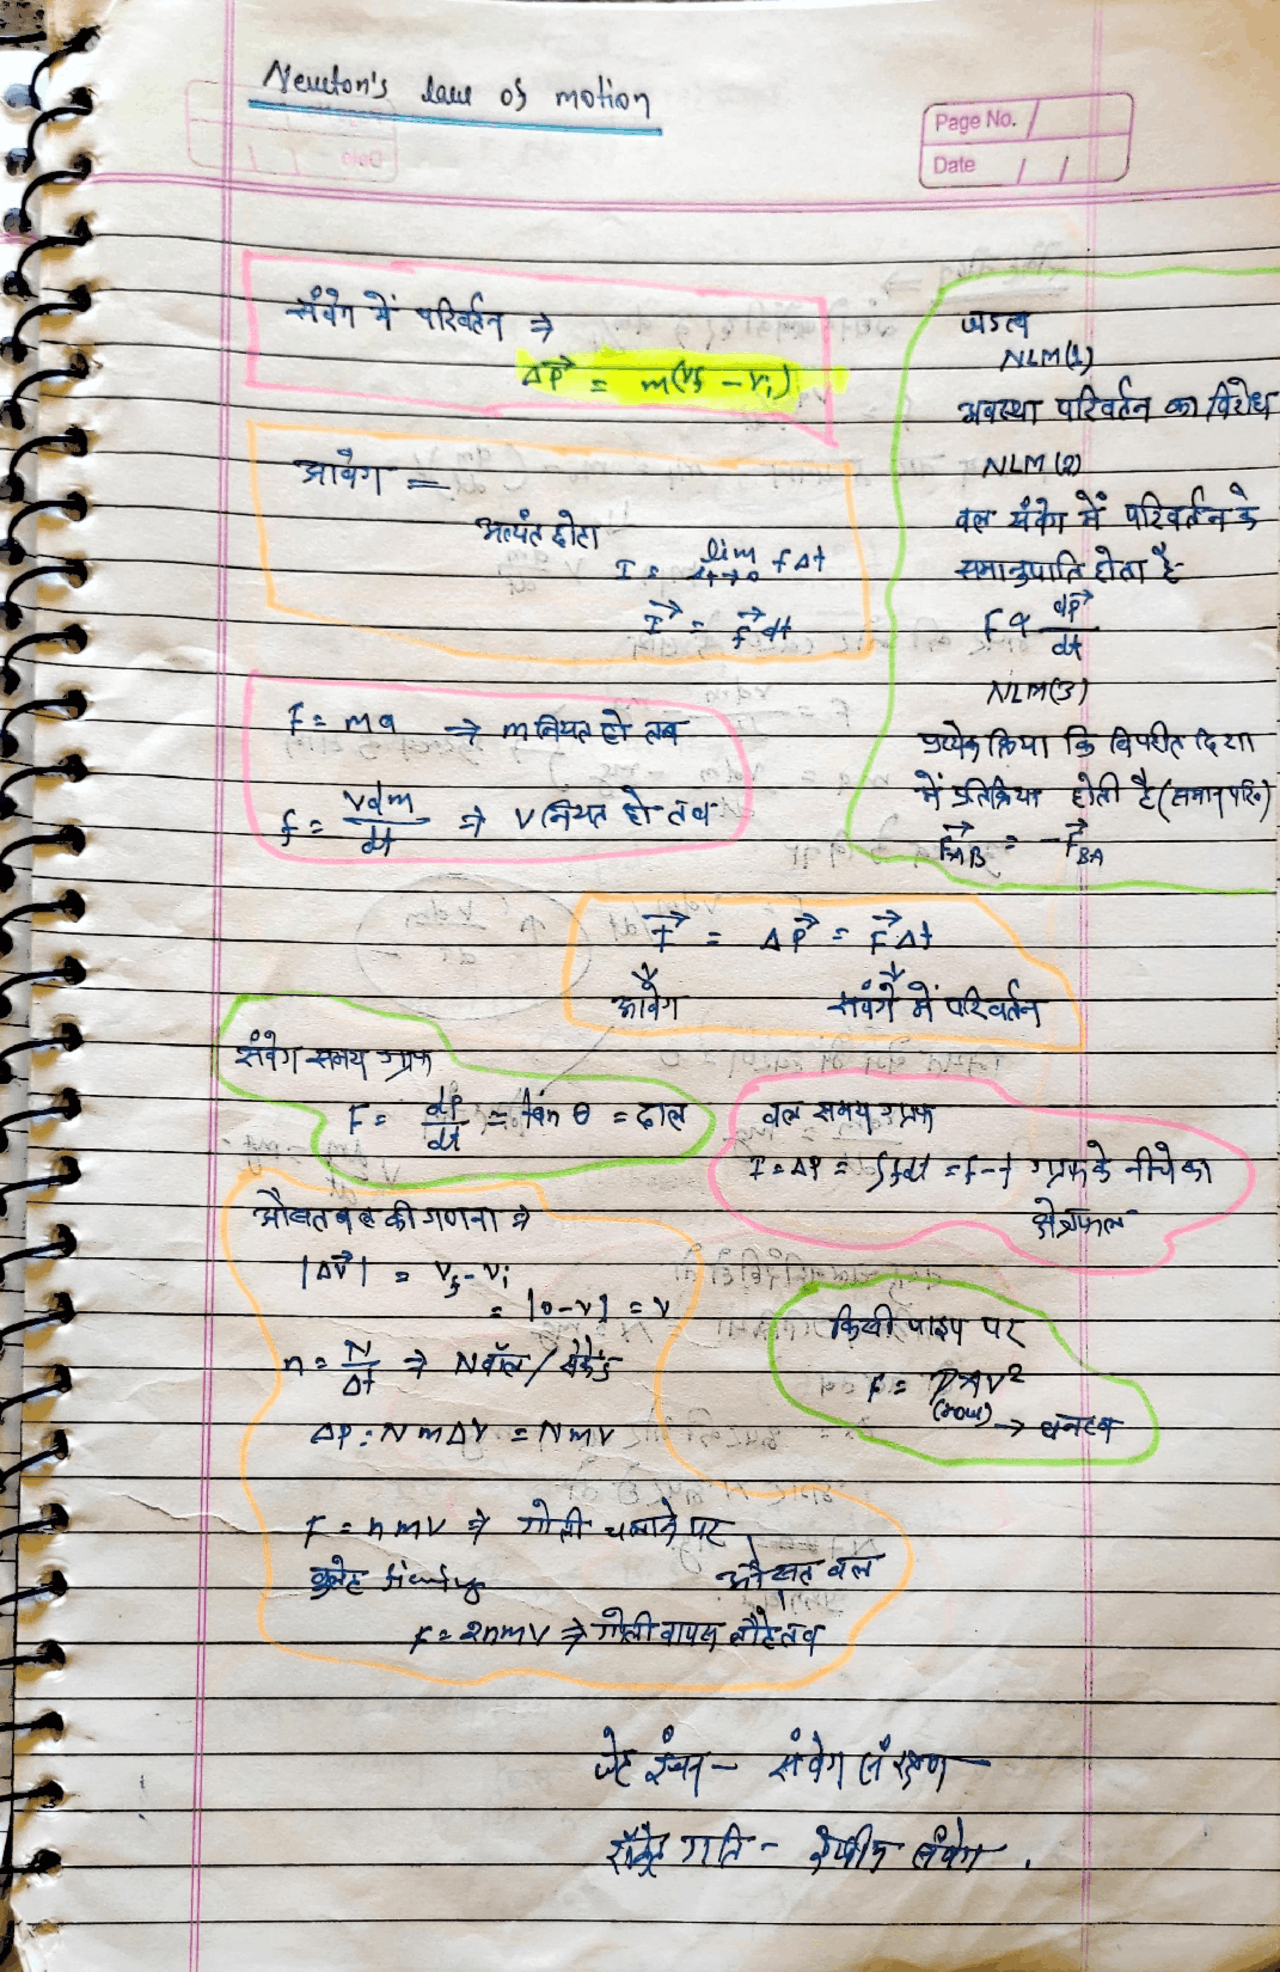 Newton's law of motion
Page No.
Date / /
संवेग में परिवर्तन ⇒
ΔP⃗ = m(vf - vi)
आवेग =
अत्यंत छोटा
I = lim Δt→0 fΔt
I⃗ = f⃗ dt
F = ma ⇒ m नियत हो तब
f = vdm/dt ⇒ v नियत हो तब
जडत्व
NLM(1)
अवस्था परिवर्तन का विरोध
NLM(2)
वल संवेग में परिवर्तन के
समानुपाति होता है
F ∝ dp⃗/dt
NLM(3)
प्रत्येक क्रिया कि विपरीत दिशा
में प्रतिक्रिया होती है (समान परि०)
F⃗AB = -F⃗BA
I⃗ = ΔP⃗ = F⃗Δt
आवेग संवेग में परिवर्तन
संवेग समय ग्राफ
F = dp/dt = tan θ = ढाल
वल समय ग्राफ
I = ΔP = ∫fdt = f-t ग्राफ के नीचे का
क्षेत्रफल
औसत बल की गणना ⇒
|Δv⃗| = vf - vi
= |0-v| = v
n = N/Δt ⇒ N बॉल / सेकेंड
ΔP = NmΔv = Nmv
किसी पाइप पर
F = ρAv²
(row) → घनत्व
F = nmv ⇒ गोली चलाने पर
औसत वल
F = 2nmv ⇒ गोली वापस लौटे तब
जेट इंजन - संवेग संरक्षण
रॉकेट गति - रेखीय संवेग .